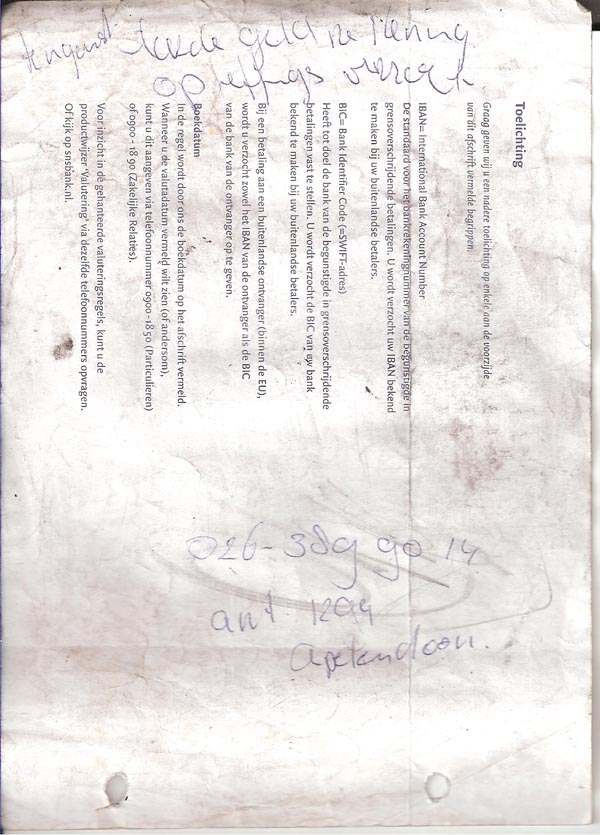 geld
Toelichting
Graag geven wij u een nadere toelichting op enkele aan de voorzijde
van dit afschrift vermelde begrippen.
IBAN= International Bank Account Number
De standaard voor het bankrekeningnummer van de begunstigde in
grensoverschrijdende betalingen. U wordt verzocht uw IBAN bekend
te maken bij uw buitenlandse betalers.
BIC= Bank Identifier Code (=SWIFT-adres)
Heeft tot doel de bank van de begunstigde in grensoverschrijdende
betalingen vast te stellen. U wordt verzocht de BIC van uw bank
bekend te maken bij uw buitenlandse betalers.
Bij een betaling aan een buitenlandse ontvanger (binnen de EU),
wordt u verzocht zowel het IBAN van de ontvanger als de BIC
van de bank van de ontvanger op te geven.
Boekdatum
In de regel wordt door ons de boekdatum op het afschrift vermeld.
Wanneer u de valutadatum vermeld wilt zien (of andersom),
kunt u dit aangeven via telefoonnummer 0900 - 18 50 (Particulieren)
of 0900 - 18 90 (Zakelijke Relaties).
Voor inzicht in de gehanteerde valuteringsregels, kunt u de
productwijzer 'Valutering' via dezelfde telefoonnummers opvragen.
Of kijk op snsbank.nl.
026-389 90 14
ant.